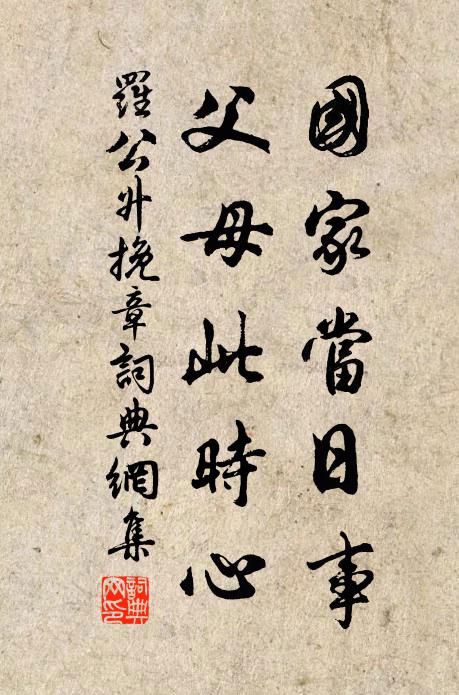 國家當日事
父母此時心
羅公升挽章詞典網集
詞典網印